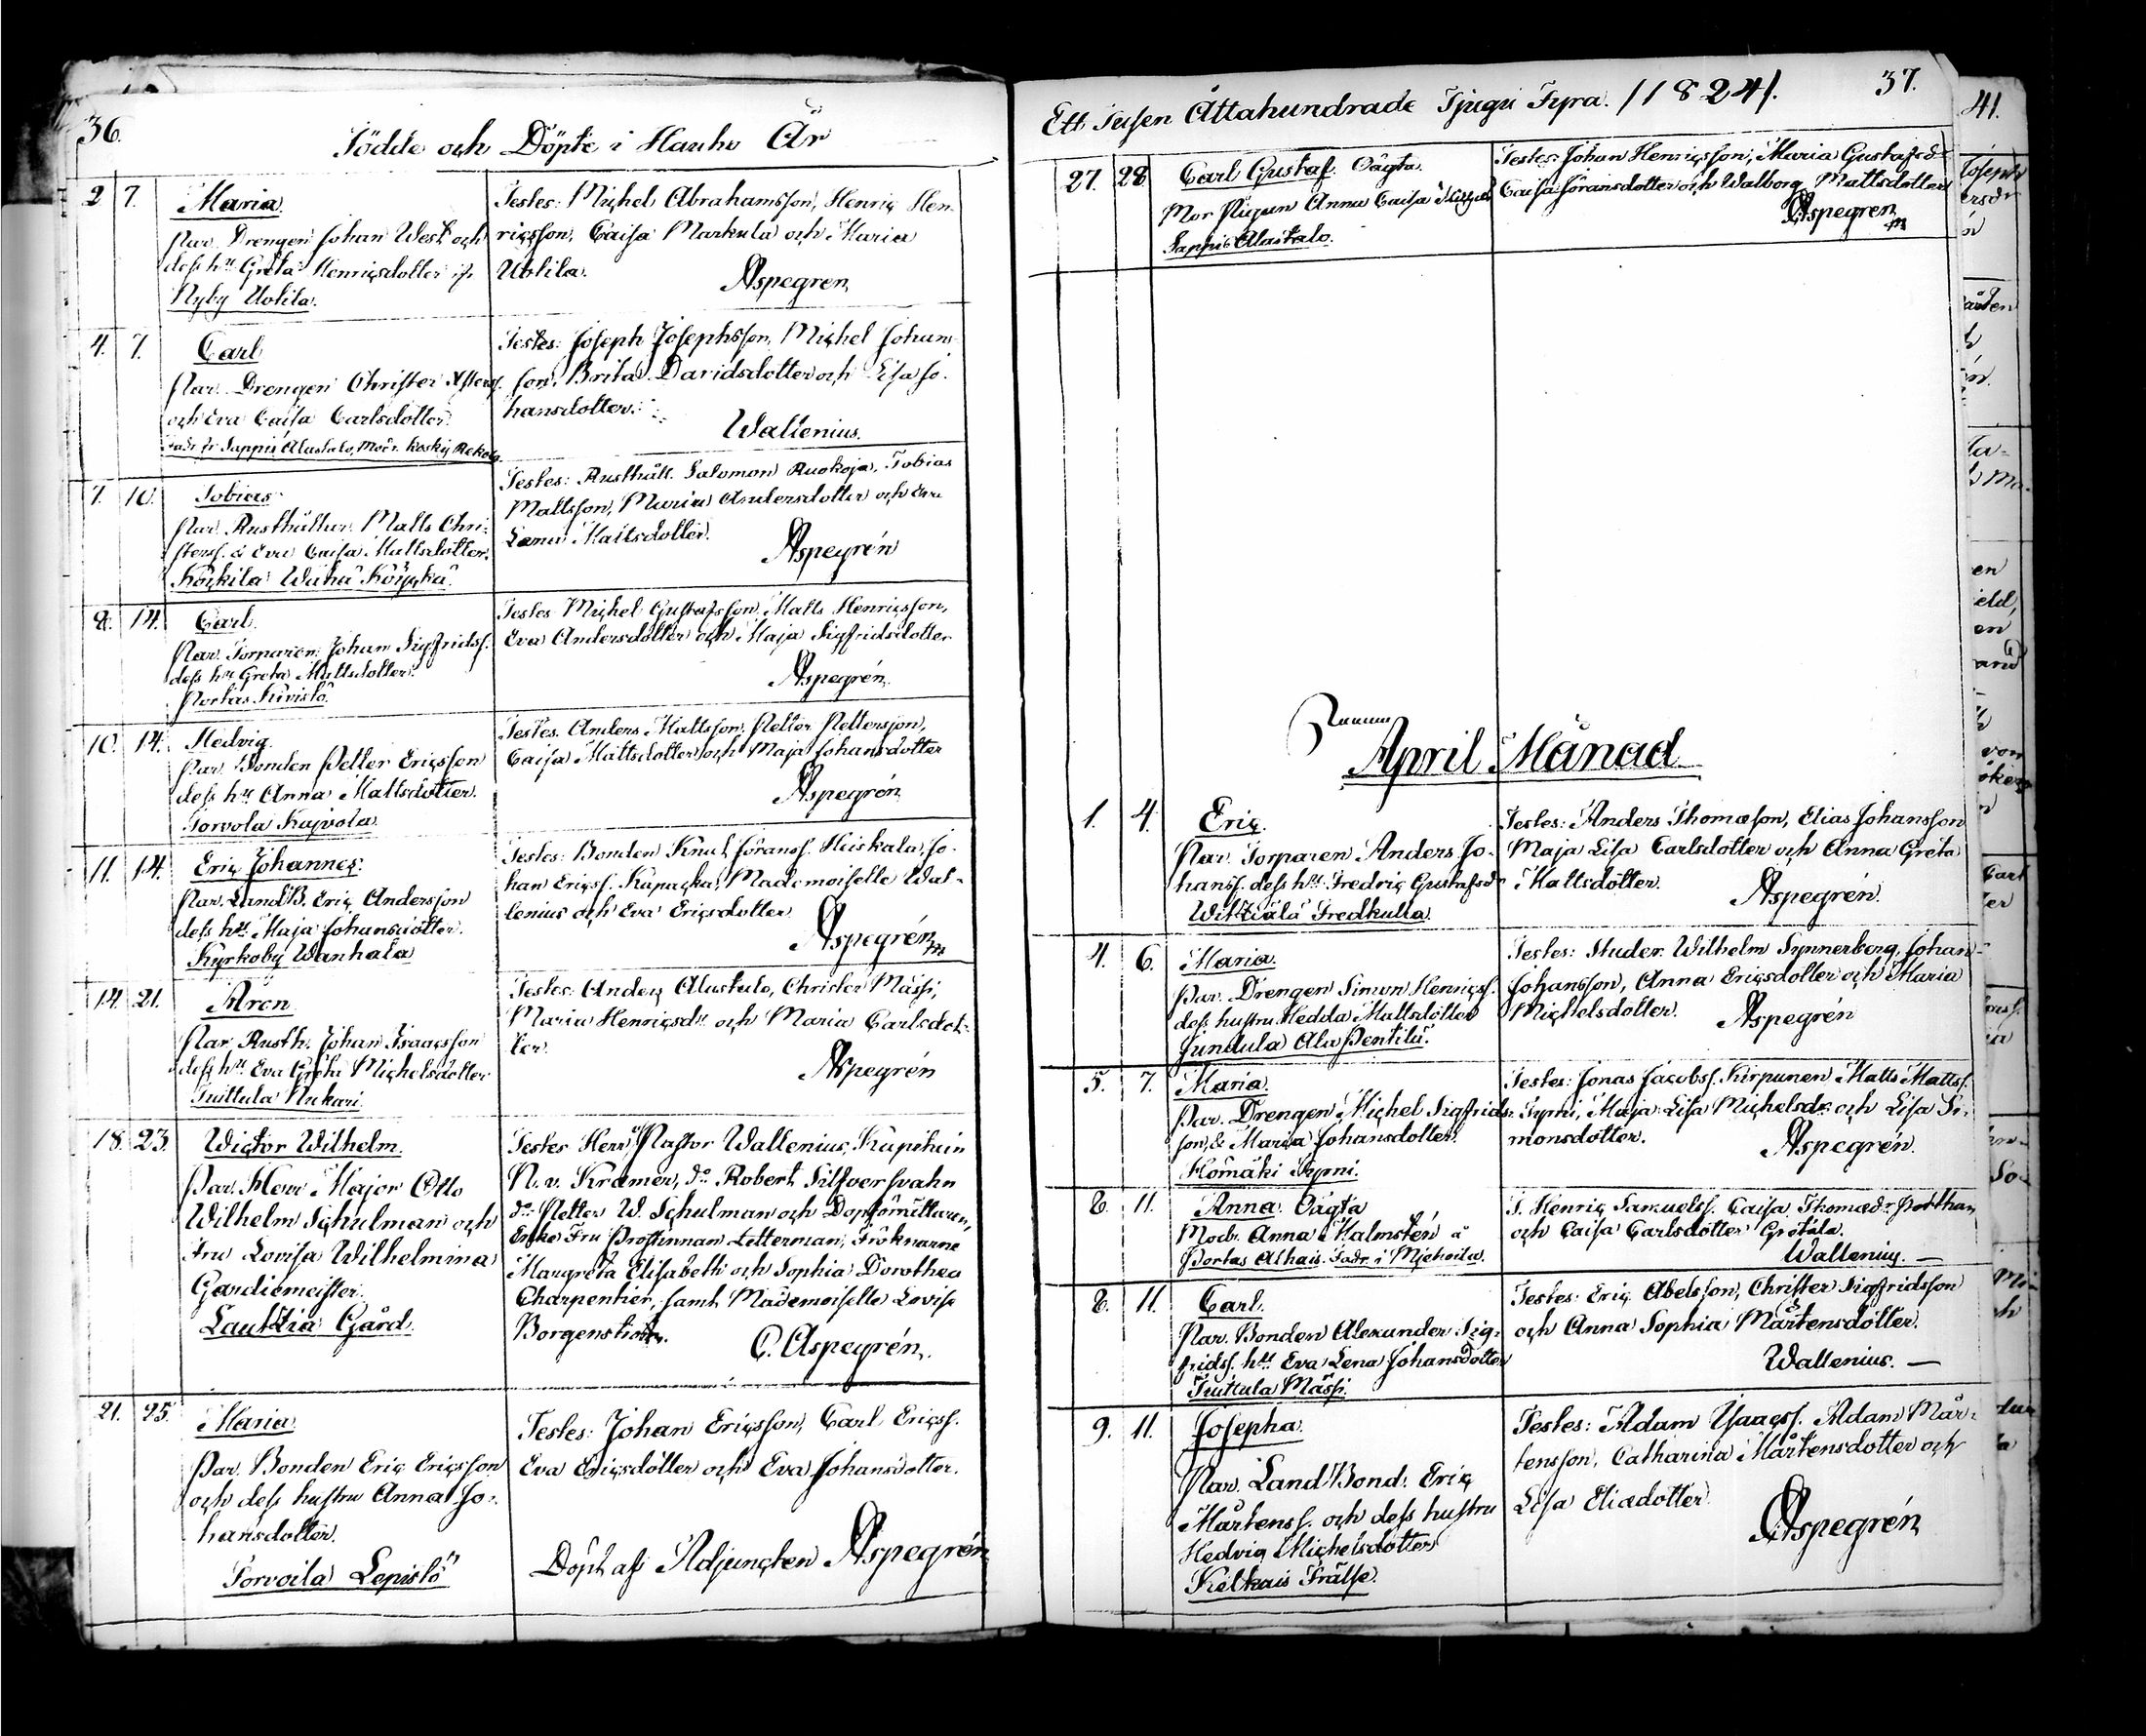 36.
Födde och Döpte i Hauho År
2 7. Maria.
Par. Drengen Johan West och
dess hu Greta Henricsdotter ifr.
Nyby Uotila.
Testes: Michel Abrahamsson, Henric Hen-
ricsson, Caisa Markula och Maria
Uotila.
Aspegren
4. 7. Carl
Par. Drengen Christer
och Eva Caisa Carlsdotter.
Fadr. fr. Sappis Alastalo, Modr. Koski
Testes: Joseph Josephsson, Michel Johans-
son, Brita Davidsdotter och Lisa Jo-
hansdotter.
Wallenius.
7. 10. Tobias
Par. Rusthållar. Matts Chri-
sterss. & Eva Caisa Mattsdotter.
Wähä
Testes: Rusthåll. Salomon Ruokoja, Tobias
Mattsson, Maria Andersdotter och
Lena Mattsdotter.
Aspegrén
8. 14. Carl.
Par. Torparen Johan Sigfridss.
dess hu Greta Mattsdotter.
Portas Kivistö.
Testes Michel Gustafsson, Matts Henricsson,
Eva Andersdotter och Maja Sigfridsdotter
Aspegrén
10. 14. Hedvig
Par. Bonden Petter Ericsson
dess hu Anna Mattsdotter.
Torvola Kajvola.
Testes. Anders Mattsson, Petter Pettersson,
Caisa Mattsdotter och Maja Johansdotter
Aspegrén
11. 14. Eric Johannes.
Par. LandB. Eric Andersson
dess hu Maja Johansdotter.
Kyrkoby Wanhala
Testes: Bonden Knut Göranss. Heiskala, Jo-
han Ericss. Kapacka, Mademoiselle Wal-
lenius och Eva Ericsdotter
Aspegrén
14. 21. Aron
Par. Rusth. Johan Isaacsson
dess hu Eva Greta Michelsdotter
Tuittula Nukari.
Testes: Anders Alastalo, Christer Mässi,
Maria Henricsdr och Maria Carlsdot-
ter.
Aspegrén
18. 23. Victor Wilhelm.
Par. Herr Major Otto
Wilhelm Schulman och
Fru Lovisa Wilhelmina
Gardiemeister.
Lautzia Gård.
Testes Herr Pastor Wallenius, Kapitein
N. v. Kræmer, do Robert Silfversvahn
do Petter W. Schulman och
Enke Fru Prostinnan Letterman, Fröknarne
Margreta Elisabeth och Sophia Dorothea
Charpentier, samt Mademoiselle Lovisa
Borgenström.
C. Aspegrén.
21. 25. Maria
Par. Bonden Eric Ericsson
och dess hustru Anna Jo-
hansdotter.
Torvoila Lepistö
Testes: Johan Ericsson, Carl Ericss.
Eva Ericsdotter och Eva Johansdotter.
Döpt af Adjuncten Aspegrén
Ett Tusen Åttahundrade Tjugu Fyra. /1824/. 37.
27. 28. Carl Gustaf. Oägta.
Mor Pigan Anna Caisa
Sappis Alastalo.
Testes: Johan Henricsson, Maria Gustafsdr
Caisa Göransdotter och Walborg Mattsdotter
Aspegren
April Månad
1. 4. Eric.
Par. Torparen Anders Jo-
hanss. dess hu Fredric Gustafsdr
Wittziälä Fredkulla.
Testes: Anders Thomasson, Elias Johansson
Maja Lisa Carlsdotter och Anna Greta
Mattsdotter.
Aspegrén.
4. 6. Maria.
Par. Drengen Simon Henricss.
dess hustru Hedda Mattsdotter
Jundula Ala Pentilä.
Testes: Studer. Wilhelm Synnerberg, Johan
Johansson, Anna Ericsdotter och Maria
Michelsdotter.
Aspegrén
5. 7. Maria.
Par. Drengen Michel Sigfrids-
son, & Maria Johansdotter.
Hömäki Syrni.
Testes: Jonas Jacobss. Kirpunen Matts Mattss.
Syrni, Maja Lisa Michelsdr och Lisa Si-
monsdotter.
Aspegrén.
8. 11. Anna. Oägta
Modr. Anna Malmstén å
Portas Alhais. Fadr. i Miehoila.
T. Henric Samuelss. Caisa Thomædr Porthan
och Caisa Carlsdotter Grötala.
Wallenius.
8. 11. Carl.
Par. Bonden Alexander Sig-
fridss. hu Eva Lena Johansdotter
Tuittula Mässi.
Testes: Eric Abelsson, Christer Sigfridsson
och Anna Sophia Mårtensdotter.
Wallenius.
9. 11. Josepha.
Par. Land Bond: Eric
Mårtenss. och dess hustru
Hedvig Michelsdotter
Kelkais Frälse.
Testes: Adam Isaacss. Adam Mår-
tensson, Catharina Mårtensdotter och
Lisa Eliædotter.
Aspegrén
41.